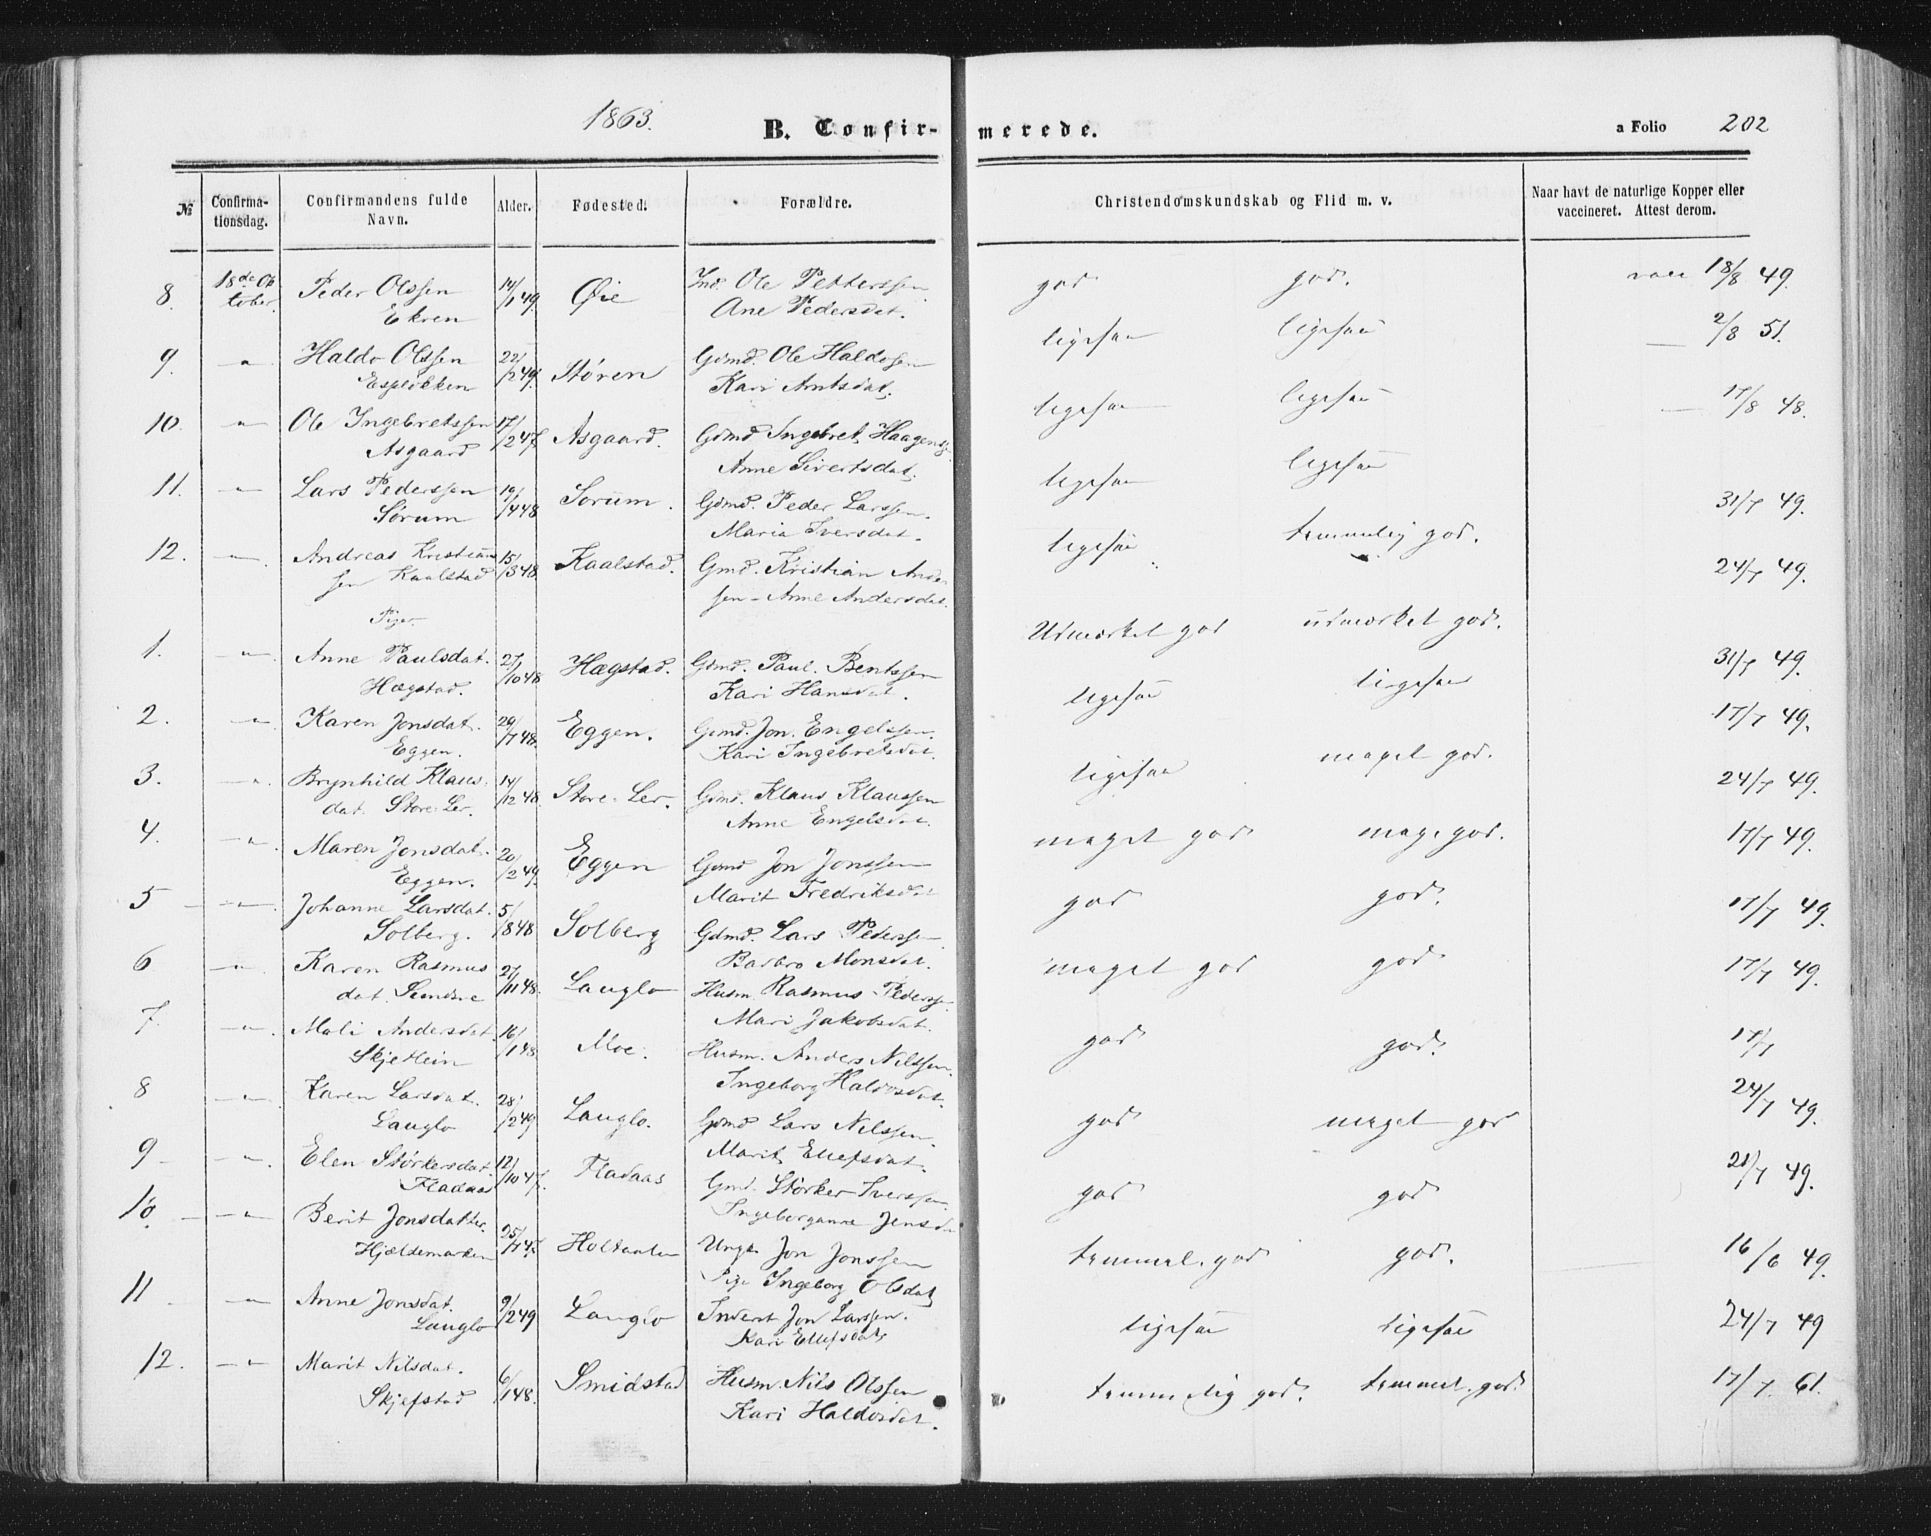 1863.
B. Confirmerede.
a Folio 202
№ Confirmationsdag. Confirmandens fulde Navn. Alder. Fødested. Forældre. Christendomskundskab og Flid m. v. Naar havt de naturlige Kopper eller vaccineret. Attest derom.
8. 18de Oktober. Peder Olssen Ekren 14/1 49. Øie Ind. Ole Petterssen Ane Pedersdat. god god. vacc 18/8 49.
9. — " — Haldo Olssen Espløkken 22/2 49. Støren Gdmd. Ole Haldosen Kari Arntsdat. ligesaa ligesaa — 2/8 51.
10. — " — Ole Ingebretssen Asgaard 17/2 47. Asgaard. Gdmd Ingebret Haagenss. Anne Sivertsdat. ligesaa ligesaa — 17/8 48.
11. — " — Lars Pederssen Sørum 19/4 48 Sørum. Gdmd. Peder Larssen. Maria Iversdat. ligesaa ligesaa 31/7 49.
12. — " — Andreas Kristianssen Kaalstad 15/3 48. Kaalstad. Gmd. Kristian Anderssen – Anne Andersdat. ligesaa temmelig god. 24/7 49.
Piger.
1. — " — Anne Paulsdat. Hægstad. 27/10 48 Hægstad. Gdmd. Paul. Bentssen Kari Hansdat. Udmærket god udmærket god. 31/7 49.
2. — " — Karen Jonsdat. Eggen. 29/7 48. Eggen. Gdmd. Jon. Engelssen. Kari Ingebretsdat. ligesaa ligesaa 17/7 49.
3. — " — Brynhild Klausdat. Store-Ler. 14/12 48. Store-Ler. Gdmd. Klaus Klaussen Anne Engelsdat. ligesaa maget god. 24/7 49.
4. — " — Maren Jonsdat. Eggen. 20/2 49. Eggen Gdmd Jon Jonssen Marit Fredriksdat maget god mage god. 17/7 49.
5 — " — Johanne Larsdat. Solberg. 5/8 48 Solberg Gdmd. Lars Pederssen. Barbro Monsdat. god god. 17/7 49.
6 — " — Karen Rasmusdat. 27/11 48. Lauglo Husm. Rasmus Pederss. Mari Jakobsdat. maget god god 17/7 49.
7. — " — Mali Andersdat. Skjetlein 16/1 48 Moe. Husm. Anders Nilssen. Ingeborg Haldosdat. god god. 17/7
8 — " — Karen Larsdat. Lauglo 28/2 49 Lauglo. Gdmd Lars Nilssen. Marit Ellefsdat. god maget god 24/7 49.
9 — " — Elen Størkersdat. Fladaas 12/10 47. Fladaas Gmd. Størker Iverssen. Ingeborganne Jensda god god 21/7 49.
10. — " — Berit Jonsdatter. Hjeldemarken 25/7 47 Holtaalen Ungk. Jon Jonssen Pige Ingeborg Olsdat temmel. god god. 16/6 49.
11 — " — Anne Jonsdat. Lauglo 9/2 49 Lauglo Inderst Jon Larssen. Kari Ellefsdat ligesaa ligesaa 24/7 49
12. — " — Marit Nilsdat. Skjefstad 6/1 48. Smidstad Husm. Nils Olssen Kari Haldosdat. temmelig god. temmel. god. 17/7. 61.